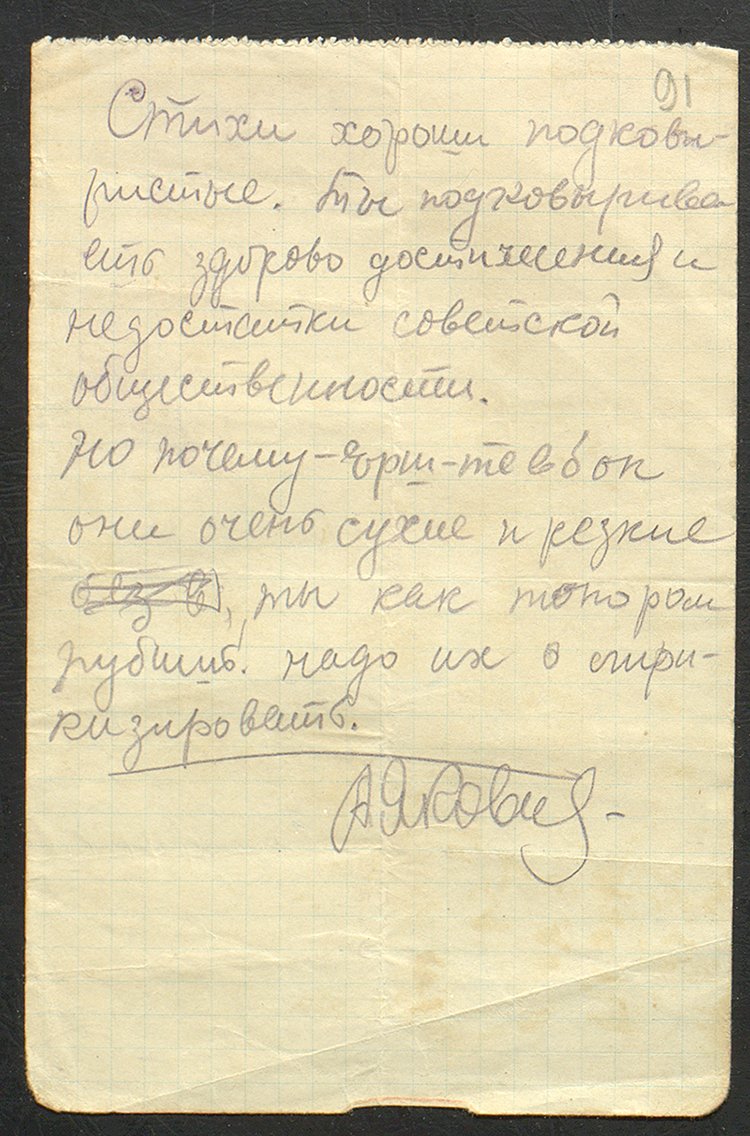 91
Стихи хороши подковы-
ристые. Ты подковырива-
ешь здорово достижения и
недостатки советской
общественности.
Но почему-
они очень сухие и резкие
без в, ты как топором
рубишь. надо их
А Яковлев